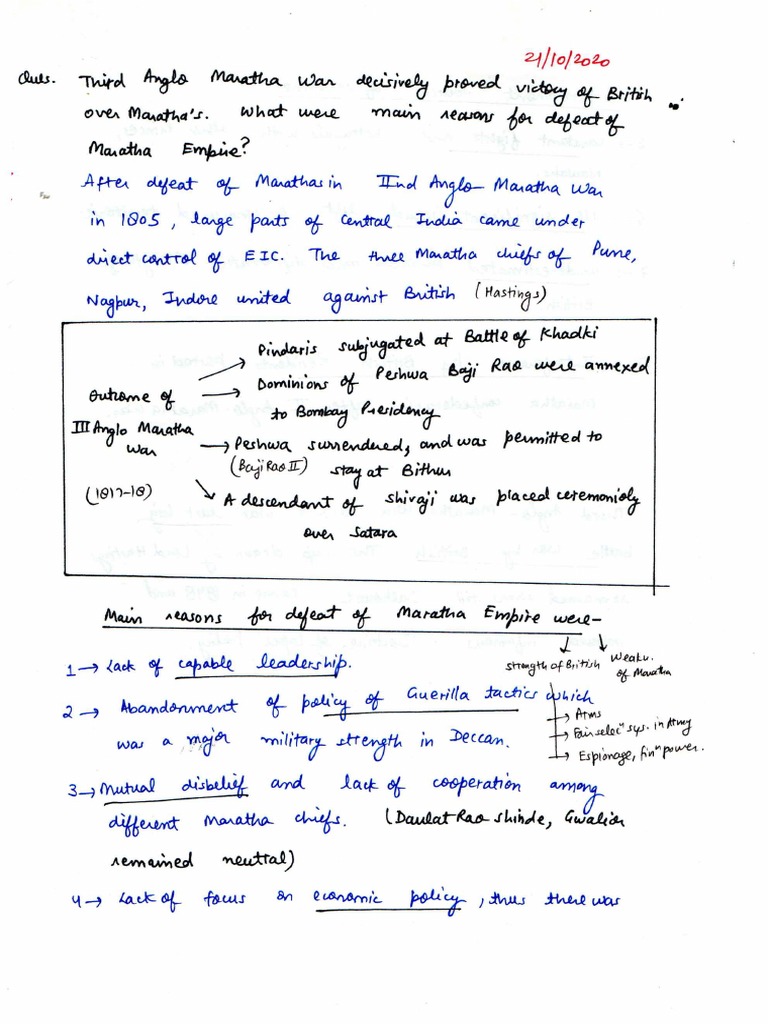 21/10/2020
Ques. Third Anglo Maratha War decisively proved victory of British
over Maratha's. What were main reasons for defeat of
Maratha Empire?
After defeat of Marathas in IInd Anglo-Maratha War
in 1805, large parts of Central India came under
direct control of EIC. The three Maratha chiefs of Pune,
Nagpur, Indore united against British (Hastings)
Outcome of
III Anglo Maratha
War
(1817-18)
→ Pindaris subjugated at Battle of Khadki
→ Dominions of Peshwa Baji Rao were annexed
to Bombay Presidency
→ Peshwa surrendered, and was permitted to
(Baji Rao II) stay at Bithur
→ A descendant of Shivaji was placed ceremonioly
over Satara
Main reasons for defeat of Maratha Empire were-
Strength of British
→ Arms
→ Fair selecn sys. in Army
→ Espionage, finn power.
Weakn. of Maratha
1 → Lack of capable leadership.
2 → Abandonment of policy of Guerilla tactics which
was a major military strength in Deccan.
3 → Mutual disbelief and lack of cooperation among
different Maratha chiefs. (Daulat Rao Shinde, Gwalior
remained neutral)
4 → Lack of focus on economic policy, thus there was